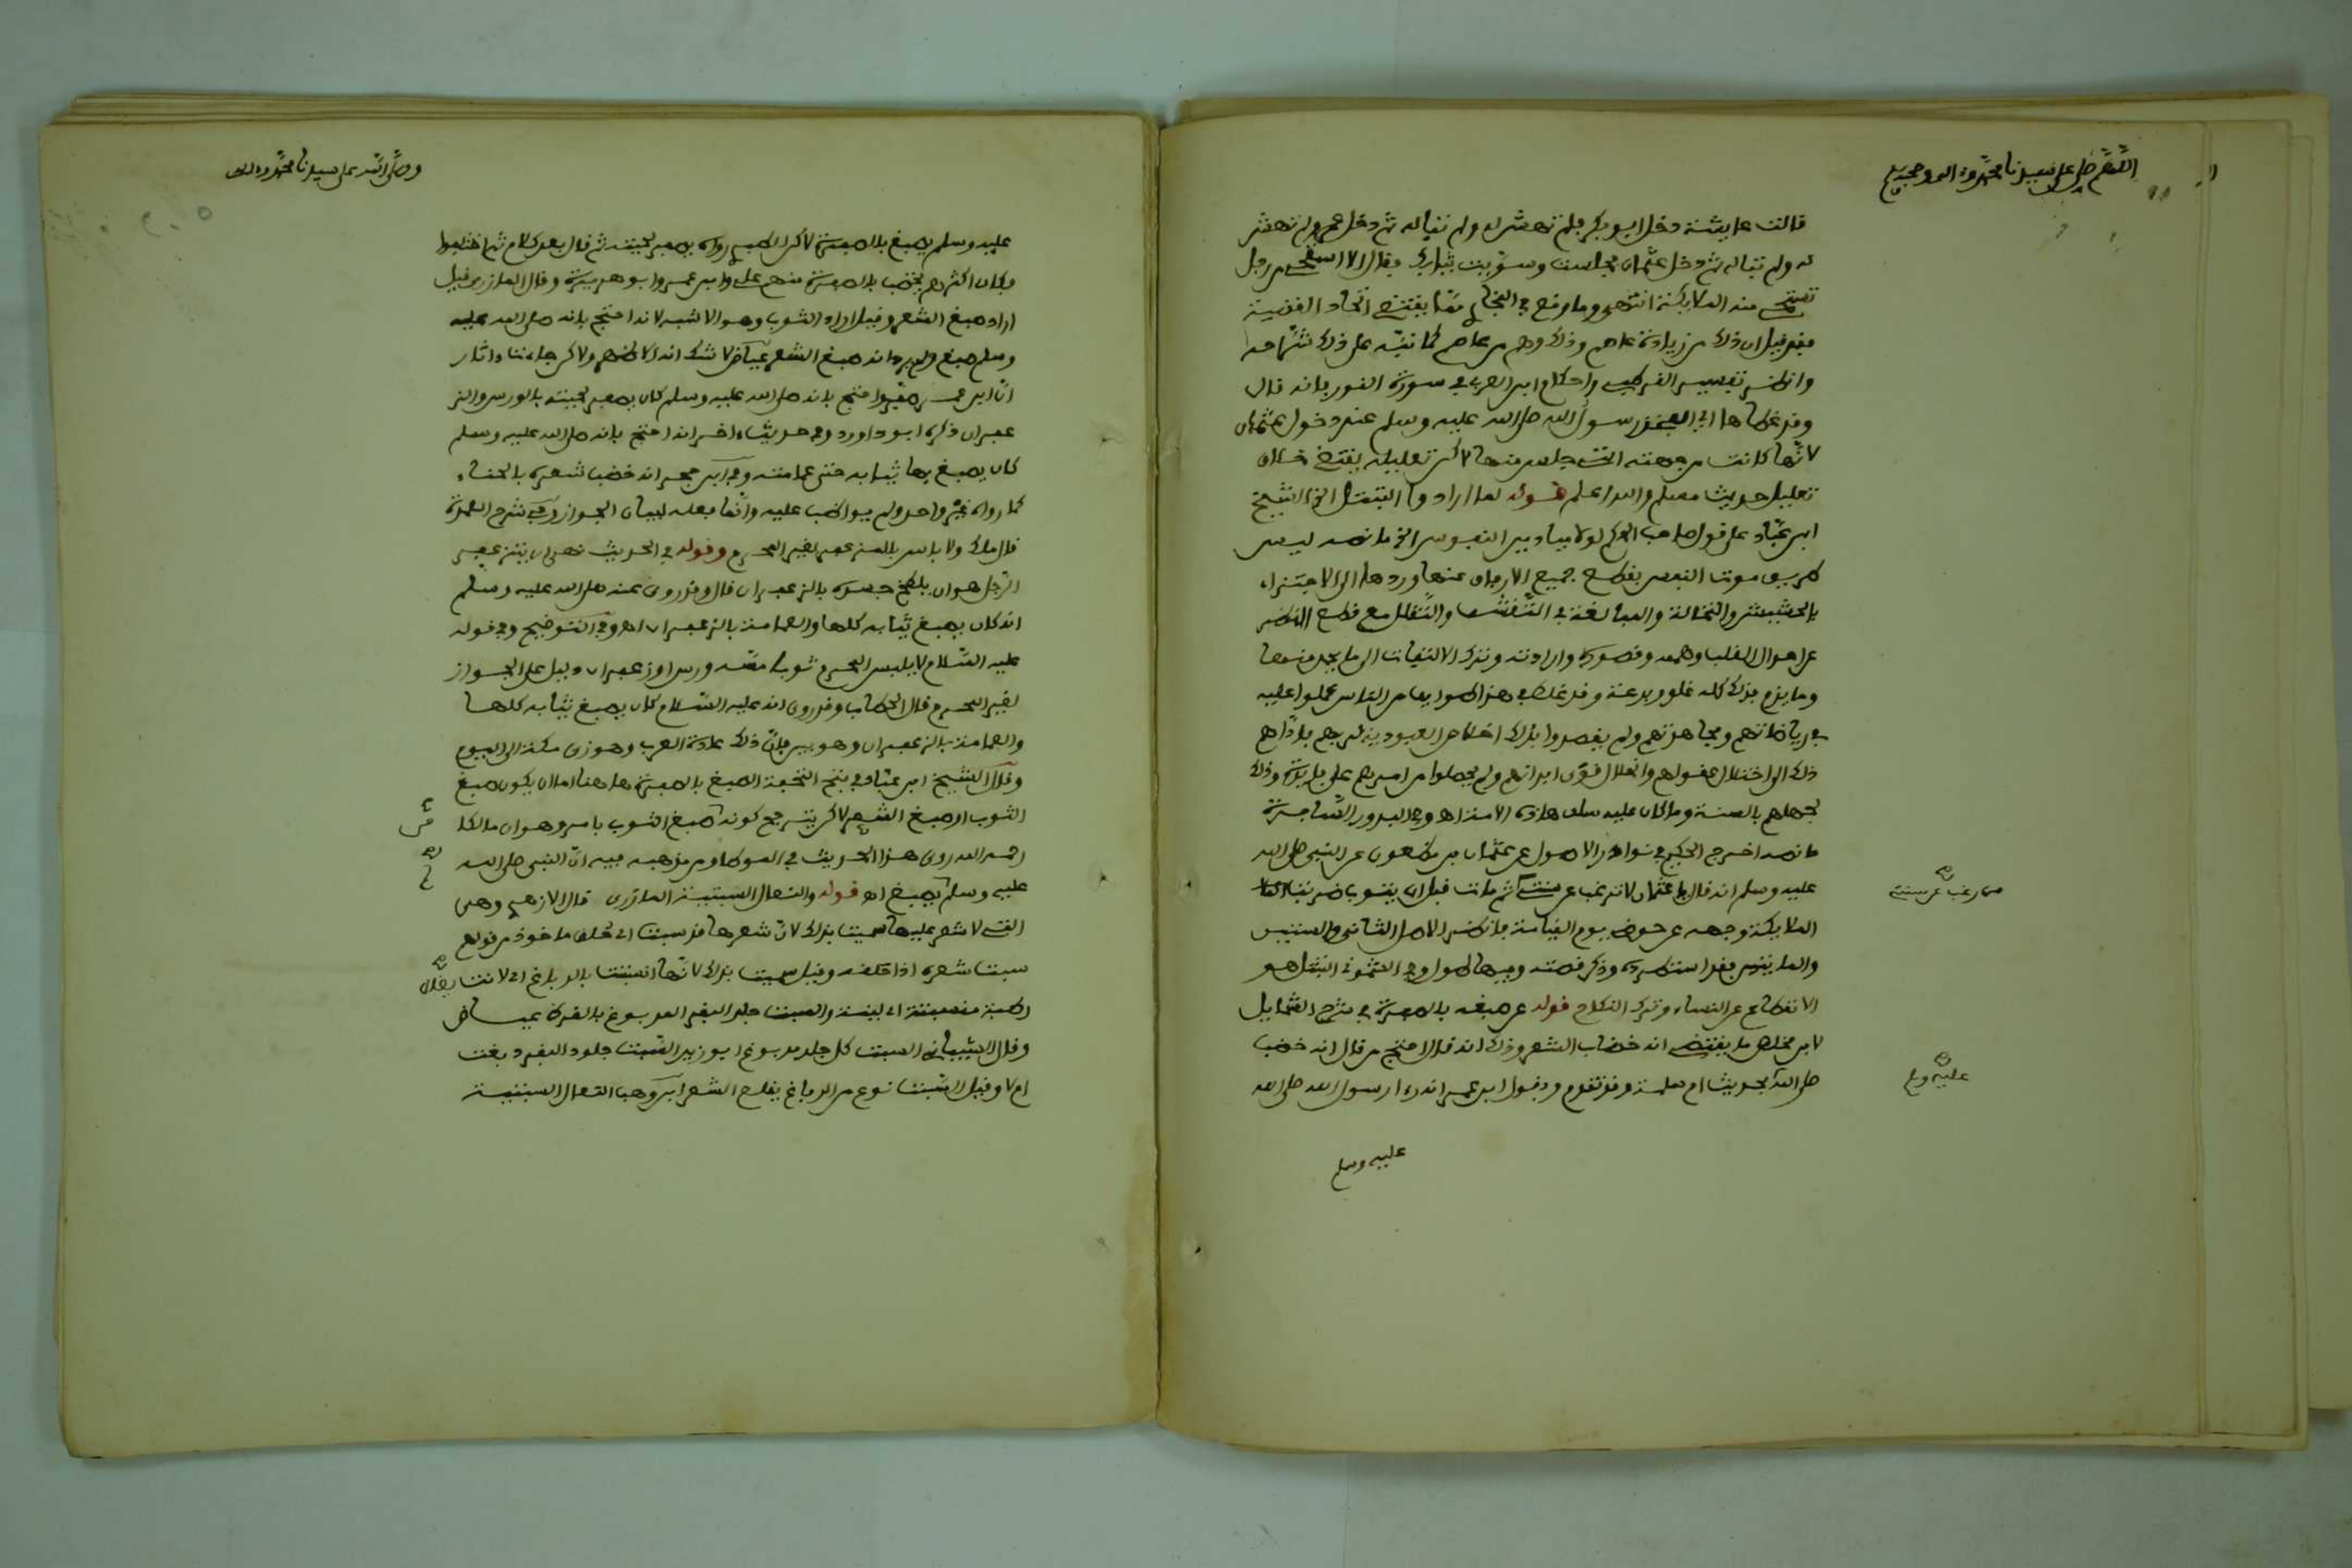 اللهم صل على سيدنا محمد وءاله وصحبه
قالت عايشة دخل ابو بكر فلم تهتش له ولم تباله ثم دخل عمر فلم تهتش
له ولم تباله ثم دخل عثمان فجلست وسويت ثيابك فقال الا استحي من رجل
تستحي منه الملايكة انتهى وما وقع في البخاري مما يقتضي اتحاد القضية
فقد قيل ان ذلك من زيادة عاصم وذلك وهم من عاصم كما نبه على ذلك شراحه
وانظر تفسير القرطبي واحكام ابن العربي في سورة النور فانه قال
وقد غطاها اي الفخذ رسول الله صلى الله عليه وسلم عند دخول عثمان
لانها كانت من جهته التي جلس منها لاكن تعليله يقتضي خلاف
تعليل حديث مسلم والله اعلم قوله لما ارادوا التبتل الخ الشيخ
ابن عباد على قول صاحب الحكم لولا ميادين النفوس الخ ما نصه ليس
طريق موت النفس بقطع جميع الارفاق عنها وردها الى الاجتزاء
بالحشيش والنخالة والمبالغة في التقشف والتقلل مع قطع النظر
عن احوال القلب وهمه وقصوده وارادته وترك الالتفات الى ما يجب منها
وما يذم فذلك كله غلو وبدعة وقد غلط في هذا طوايف من الناس عملوا عليه
في رياضاتهم ومجاهدتهم ولم يقصدوا بذلك اخلاص العبودية لربهم فاداهم
ذلك الى اختلال عقولهم وانحلال قوى ابدانهم ولم يحصلوا من امرهم على فايدة وذلك
لجهلهم بالسنة وما كان عليه سلف هاذه الامة اهـ وفي البدور السافرة
ما نصه اخرج الحكيم في نوادر الاصول عن عثمان بن مظعون عن النبي صلى الله
عليه وسلم انه قال يا عثمان لا ترغب عن سنتي ثم مات قبل ان يتوب ضربت
فمن رغب عن سنتي صح
الملايكة وجهه عن حوضي يوم القيامة فانظر الاصل الثاني والستين
والمايتين فقد استطرده وذكر قصته وفيها طول وفي العثموني التبتل هو
الانقطاع عن النساء وترك النكاح قوله عن صبغه بالصفرة في شرح الشمايل
لابن مخلص ما يقتضي انه خضاب الشعر وذلك انه قال احتج من قال انه خضب
صلى الله بحديث ام سلمة وقد تقدم وبقول ابن عمر انه رءا رسول الله صلى الله
عليه وسلم صح
عليه وسلم
وصلى الله على سيدنا محمد وءاله
عليه وسلم يصبغ بالصفرة لاكن الصحيح رواه يصفر لحيته ثم قال بعد كلام ثم اختلفوا
فكان اكثرهم يخضب بالصفرة منهم علي وابن عمر وابو هريرة وقال المازري قيل
اراد صبغ الشعر وقيل اراد الثوب وهو الاشبه لانه احتج بانه صلى الله عليه
وسلم صبغ ولم يرد انه صبغ الشعر عياض لا شك انه الاظهر ولاكن جاءتنا ءاثار
ان ابن عمر صفر واحتج بانه صلى الله عليه وسلم كان يصفر لحيته بالورس والز
عفران ذكره ابو داوود وفي حديث ءاخر انه احتج بانه صلى الله عليه وسلم
كان يصبغ بها ثيابه حتى عمامته وفي ابن حجر انه خضب شعره بالحناء
كما رواه غير واحد ولم يواظب عليه وانما فعله لبيان الجواز وفي شرح العمدة
قال ملك ولا باس بالمزعفر لغير المحرم وقوله في الحديث نهى ان يتزعفر
الرجل هو ان يلطخ جسده بالزعفران قال وقد روي عنه صلى الله عليه وسلم
انه كان يصبغ ثيابه كلها والعمامة بالزعفران اهـ وفي التوضيح وفي قوله
عليه السلام لا يلبس المحرم ثوبا مسه ورس او زعفران دليل على الجواز
لغير المحرم قال الخطاب وقد روي انه عليه السلام كان يصبغ ثيابه كلها
والعمامة بالزعفران وهو يبين ان ذلك عادة العرب وهو زي مكة الى اليوم
وقال الشيخ ابن عباد في نتيج التحفة الصبغ بالصفرة ها هنا اما ان يكون صبغ
الثوب او صبغ الشعر لاكن يترجح كونه صبغ الثوب بامر وهو ان مالكا
رحمه الله روى هذا الحديث في الموطا ومن مذهبه فيه ان النبي صلى الله
عليه وسلم يصبغ اهـ قوله والنعال السبتية المازري قال الازهري وهي
التي لا شعر عليها سميت بذلك لان شعرها قد سبت اي حلق ماخوذ من قولهم
سبت شعره اذا حلقه وقيل سميت بذلك لانها انسبتت بالدباغ اي لانت يقال
رطبة منسبتة اي لينة والسبت جلد البقر المدبوغ بالقرظ عياض
وقال الشيباني السبت كل جلد مدبوغ ابو زيد السبت جلود البقر دبغت
ام لا وقيل السبت نوع من الدباغ يقلع الشعر ابن وهب النعال السبتية